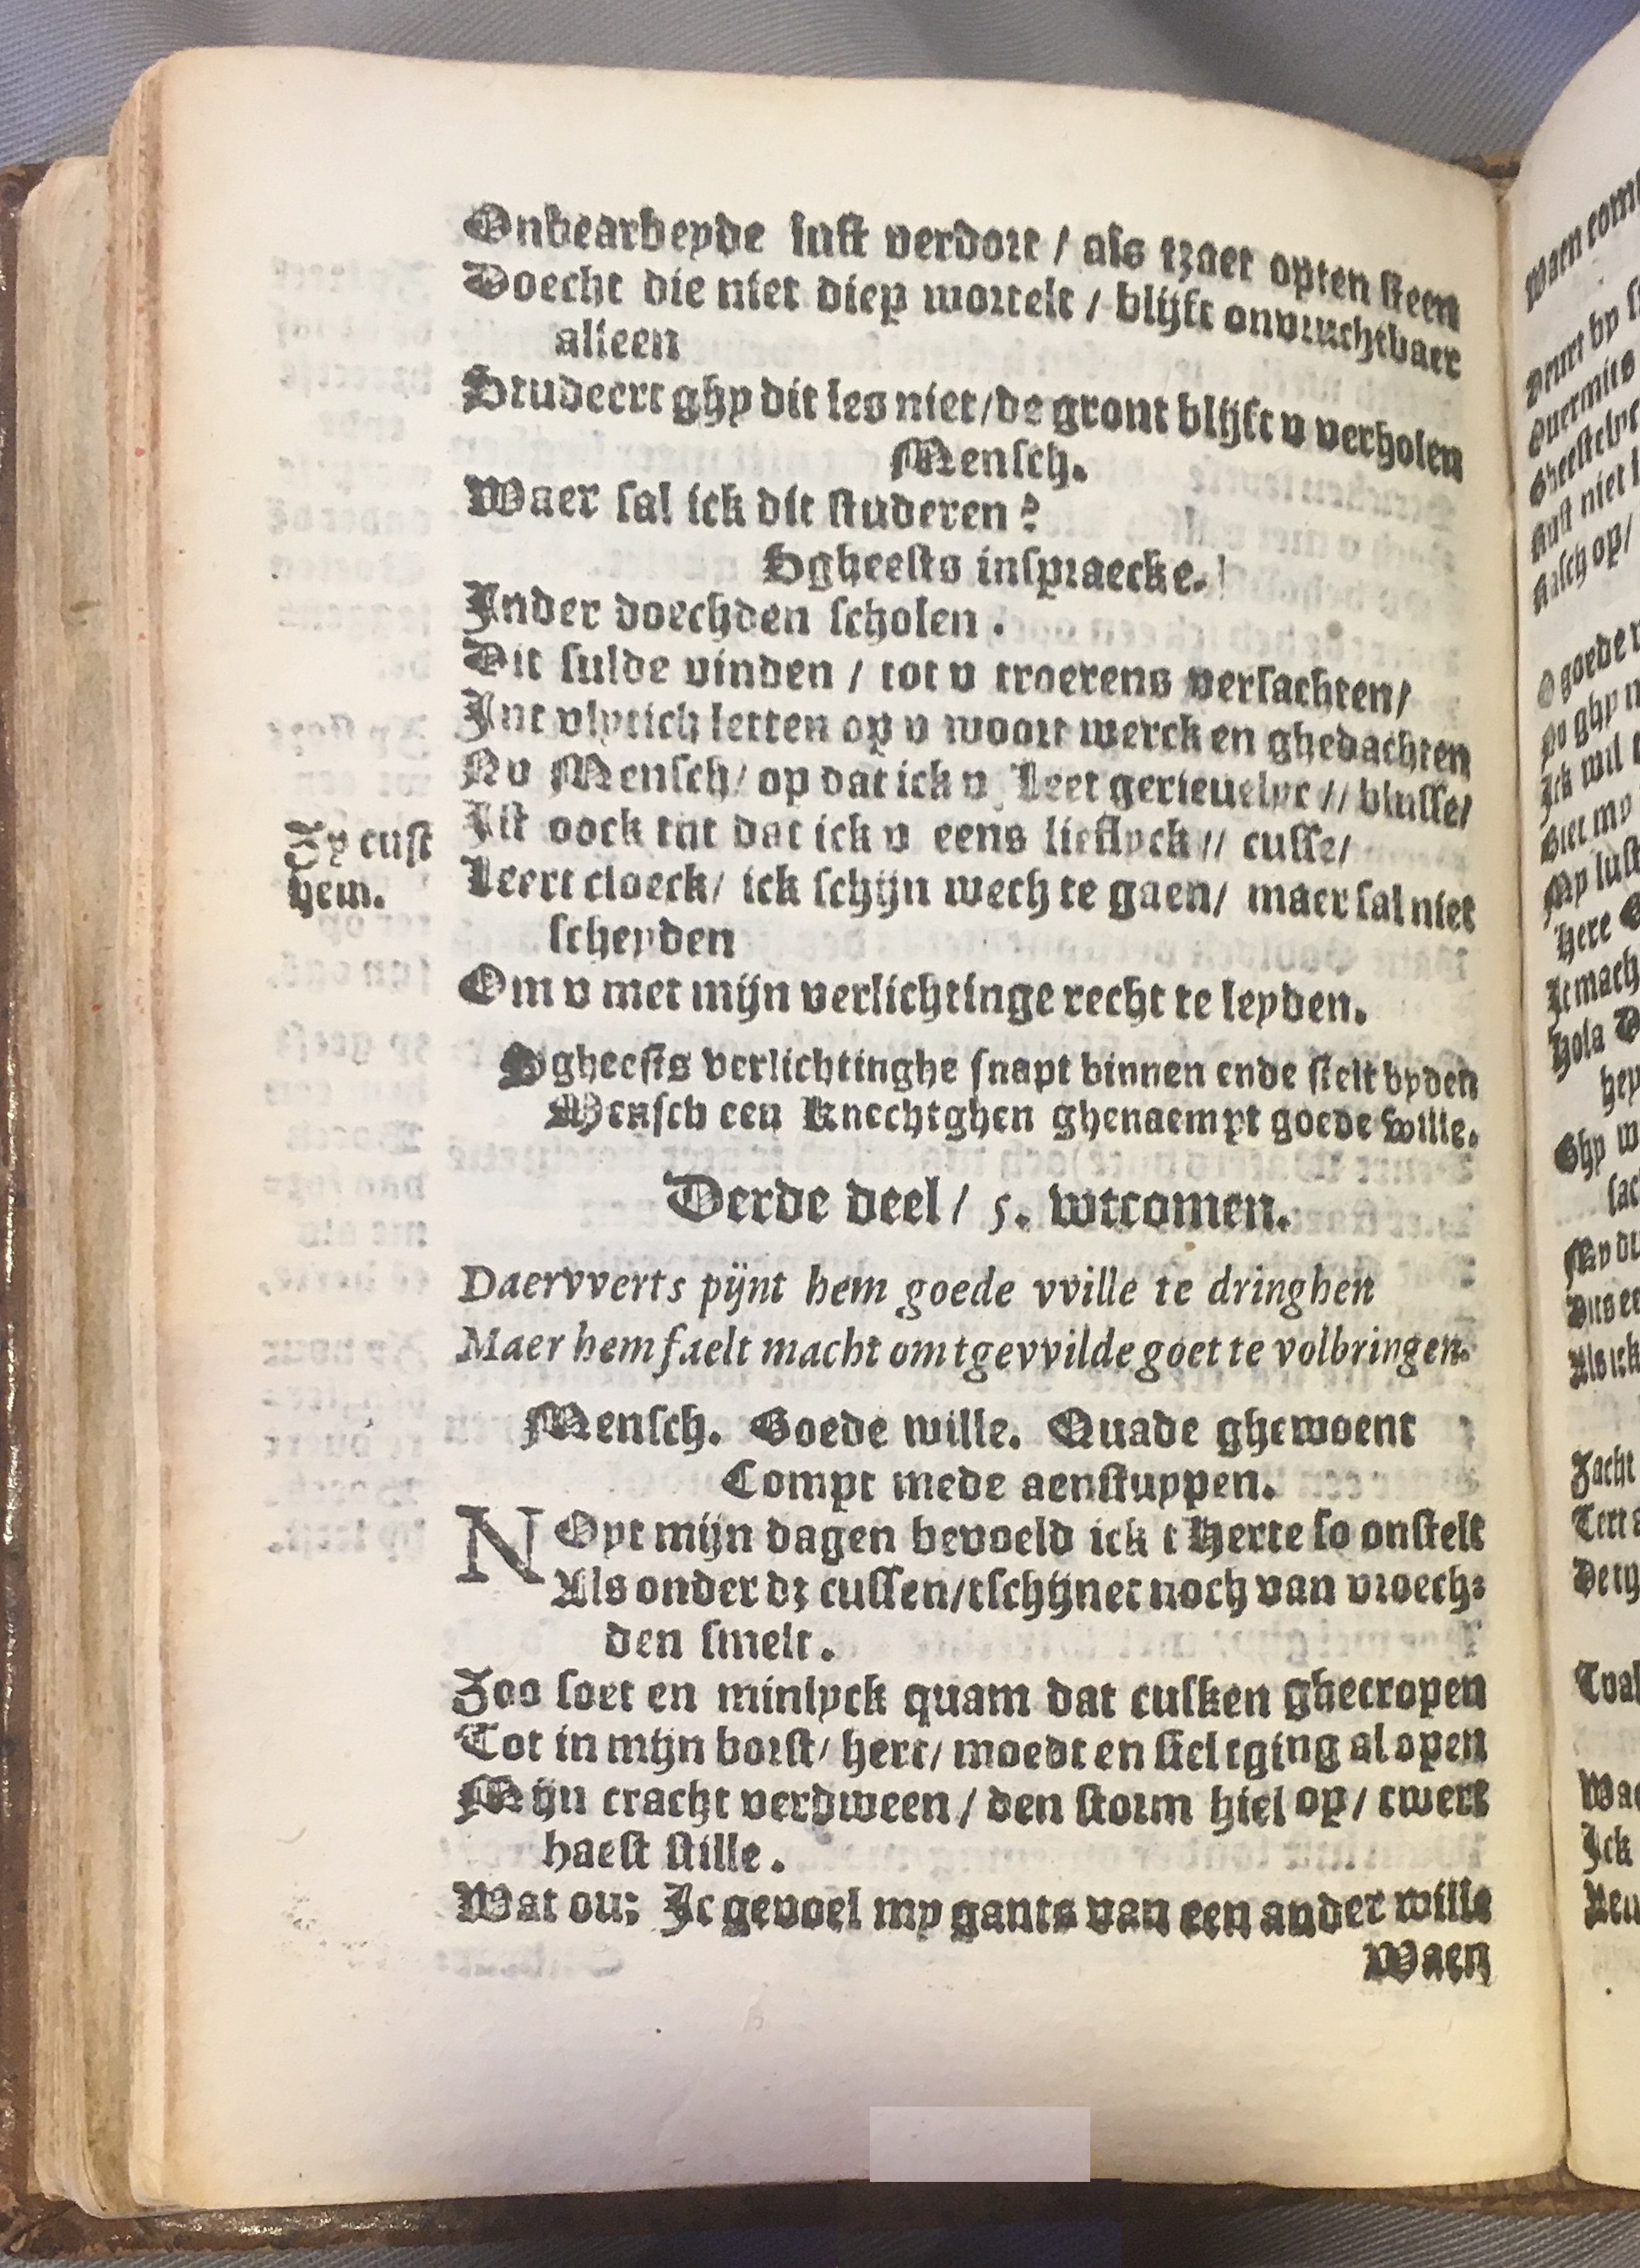 Onbearbeyde lust verdort / als tzaet opten steen
Doecht die niet diep wortelt / blijft onvruchtbaer
alleen
Studeert ghy dit les niet/de gront blijft v verholen
Mensch.
Waer sal ick dit studeren?
Sgheests inspraecke.
Inder doechden scholen.
Dit sulde vinden / tot v troerens versachten/
Int vlytich letten op v woort werck en ghedachten
Nv Mensch/ op dat ick v Leet gerieuelyc // blusse/
Ist oock tnt dat ick v eens lieflyck // cusse/
Zy cust
hem.
Leert cloeck/ ick schijn wech te gaen/ maer sal niet
scheyden
Om v met mijn verlichtinge recht te leyden.
Sgheests verlichtinghe snapt binnen ende stelt byden
Mensch een knechtghen ghenaempt goede wille.
Derde deel / 5. wtcomen.
Daervverts pijnt hem goede vville te dringhen
Maer hem faelt macht om tgevvilde goet te volbringen.
Mensch. Goede wille. Quade ghewoent
Compt mede aenstuppen.
NOyt mijn dagen bevoeld ick t Herte so onstelt
Als onder dz cussen/tschijnet noch van vroech⸗
den smelt.
Zoo soet en minlyck quam dat cusken ghecropen
Tot in mijn borst/ hert/ moedt en siel tging al open
Mijn cracht verdween / den storm hiel op/ twert
haest stille.
Wat ou; Ic gevoel my gants van een ander wille
Waen
Waen